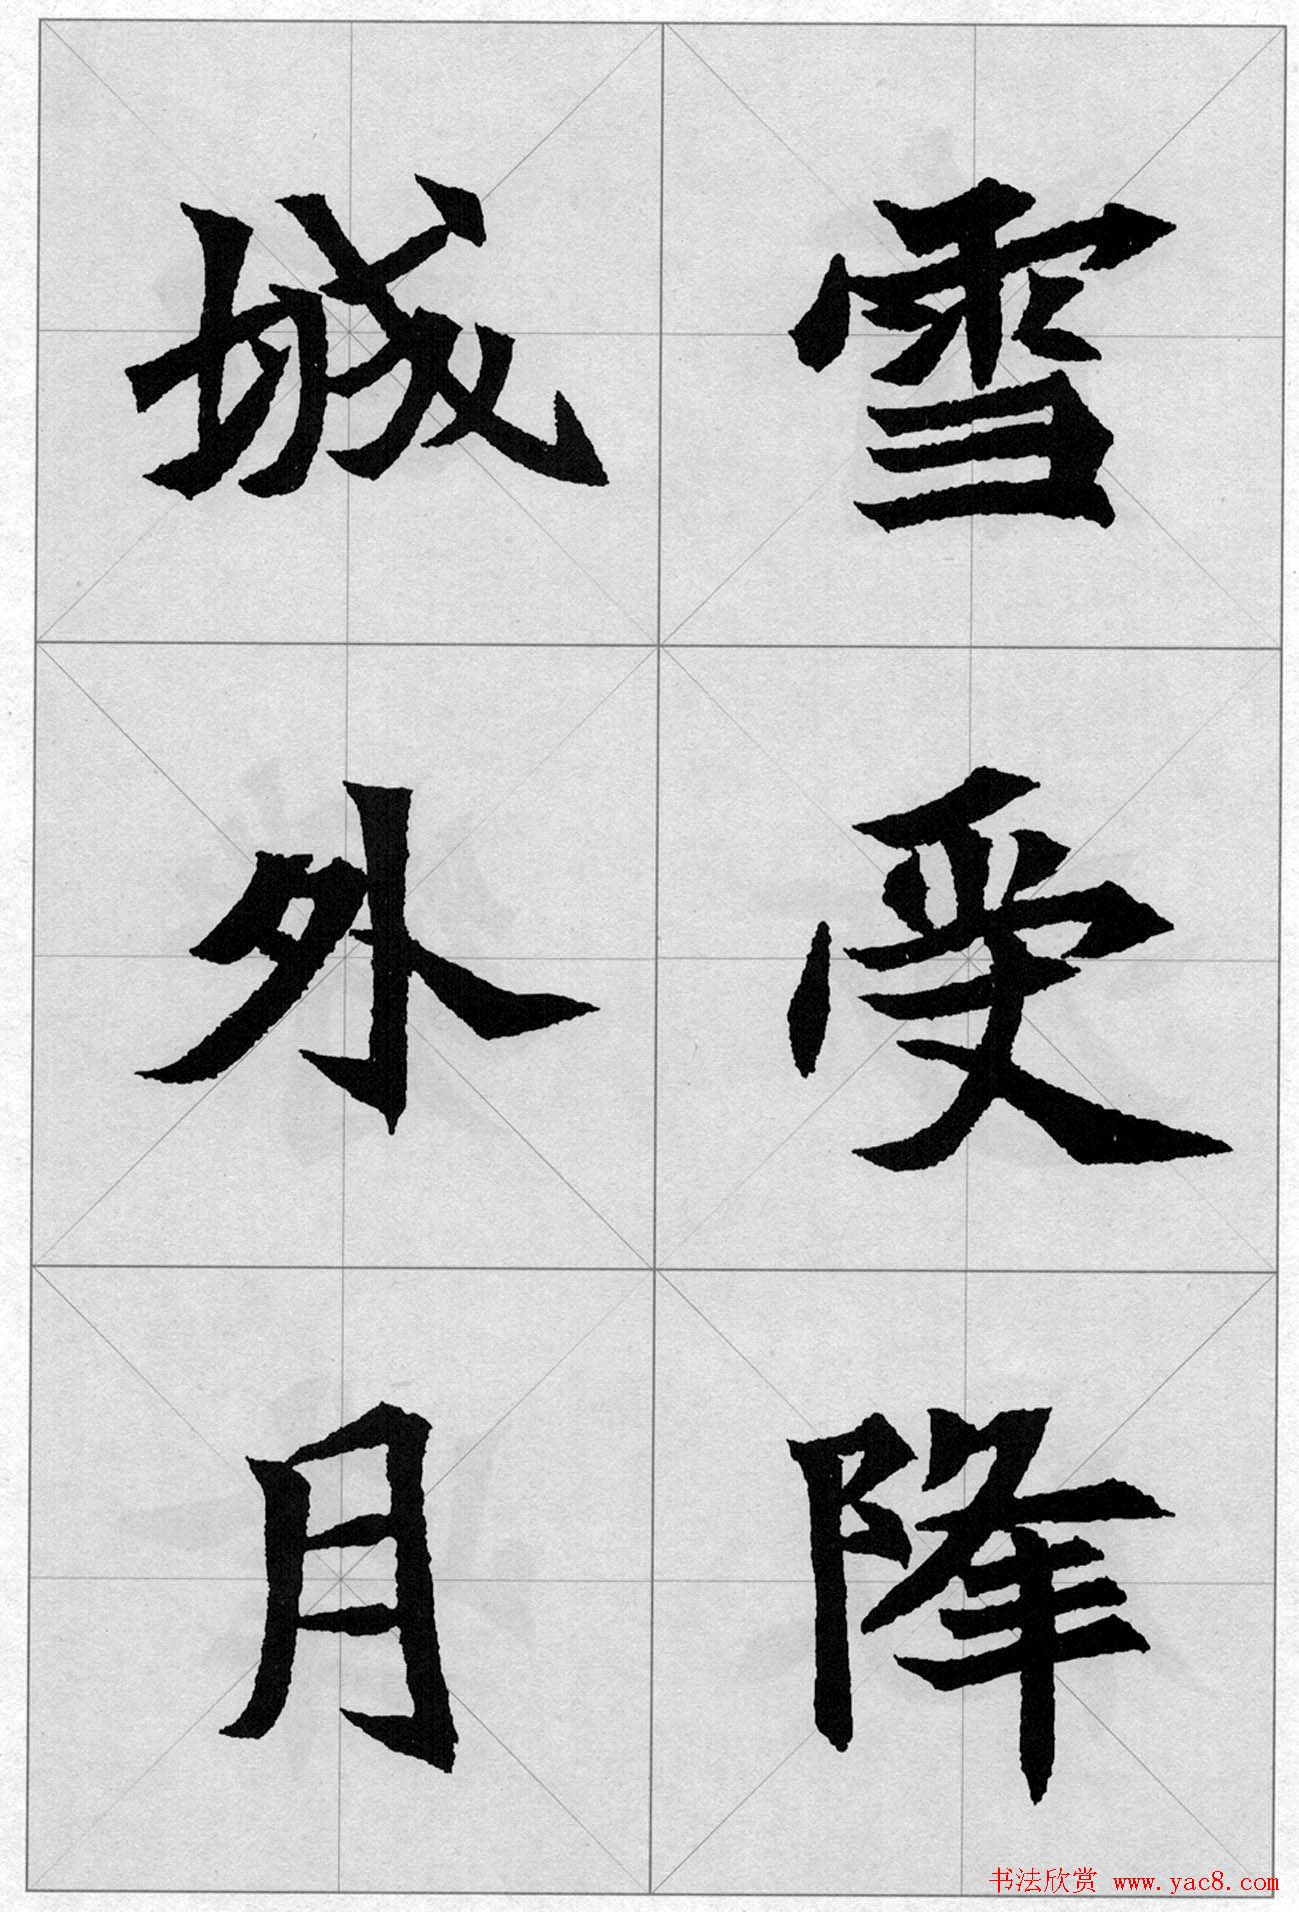 雪受降
城外月
书法欣赏 www.yac8.com